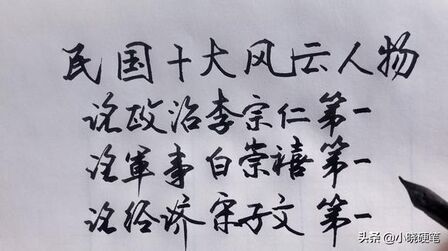 民国十大风云人物
论政治李宗仁第一
论軍事白崇禧第一
论经济宋子文第一
头条 @小晓硬笔